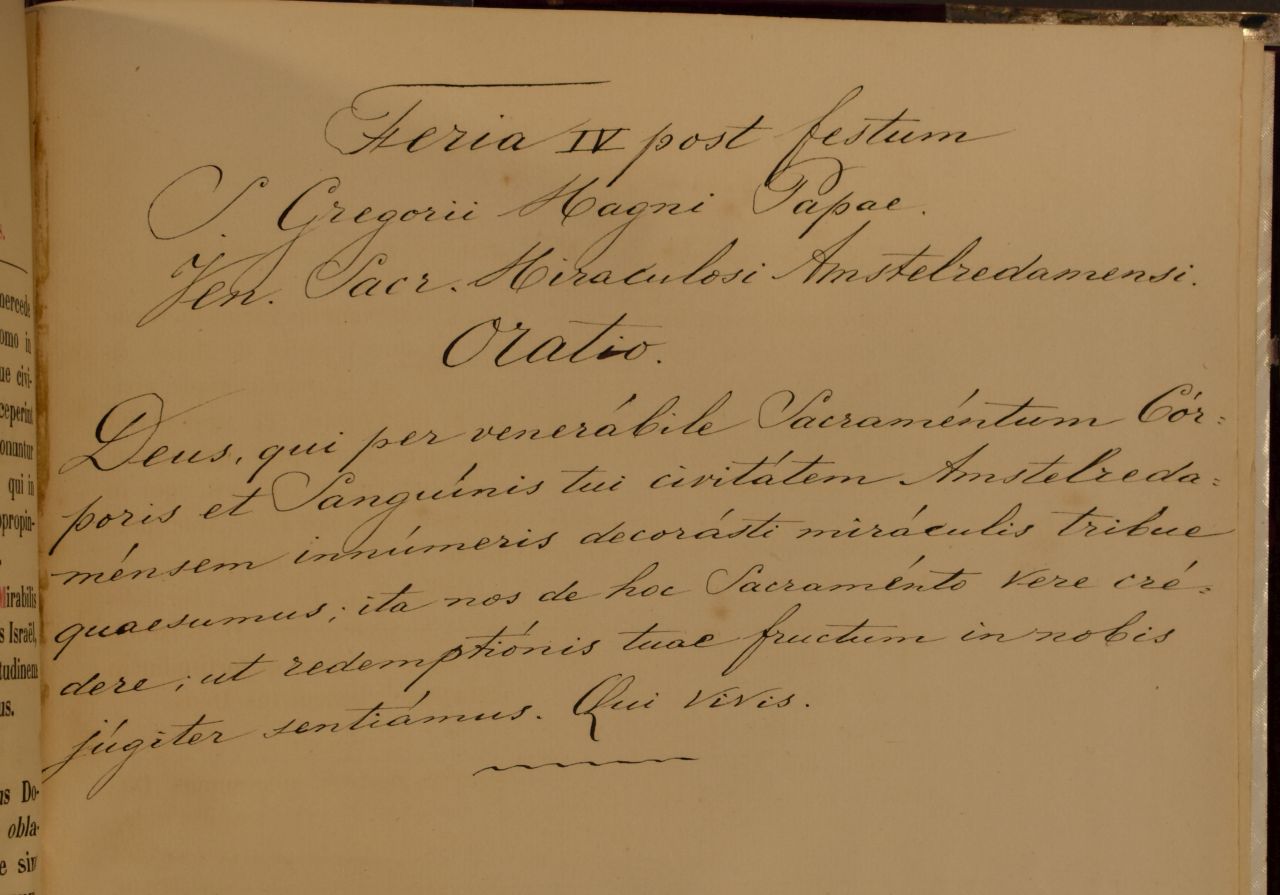 Feria IV post festum
S. Gregorii Magni Papae.
Ven. Sacr. Miraculosi Amstelredamensi.
Oratio.
Deus, qui per venerábile Sacraméntum Cór=
poris et Sanguínis tui civitátem Amstelreda=
ménsem innúmeris decorásti miráculis tribue
quaesumus; ita nos de hoc Sacraménto vere cré=
dere; ut redemptiónis tuae fructum in nobis
júgiter sentiámus. Qui vivis.
s.
mercede
omo in
ue civi-
ceperint
onuntur
qui in
ppropin-
Mirabilis
s Israël,
tudinem
us.
us Do-
obla-
e sin